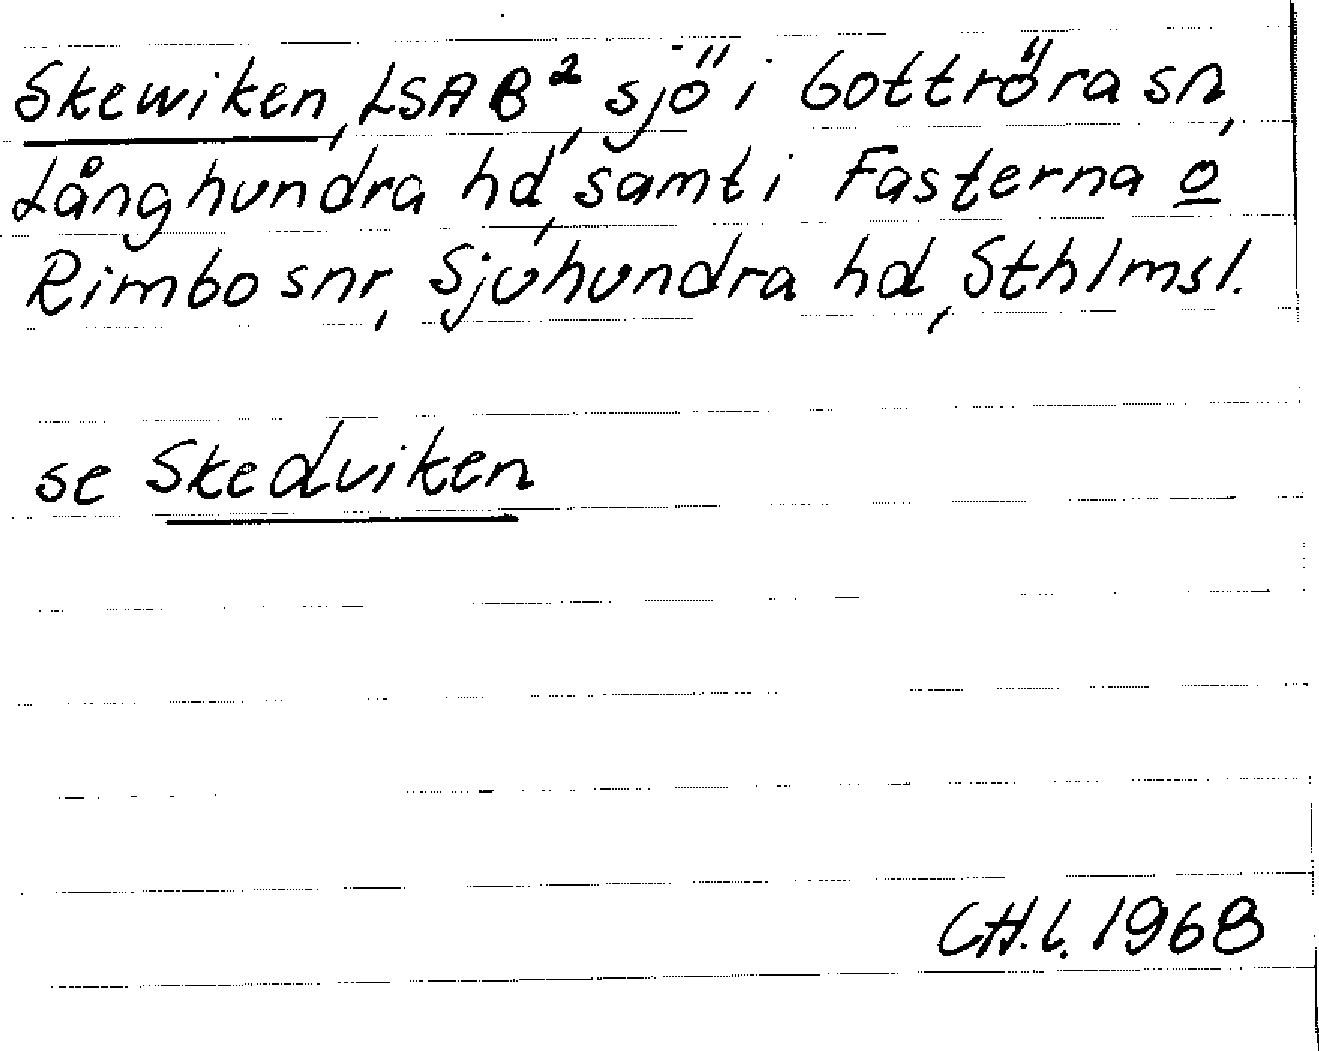 Skewiken, LSA B², sjö i Gottröra sn,
Långhundra hd, samt i Fasterna o
Rimbo snr, Sjuhundra hd, Sthlmsl.
se Skedviken
C.H.L. 1968